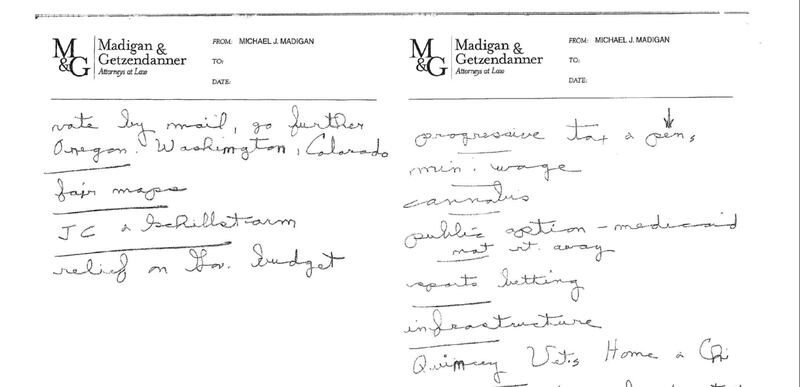 M&G
Madigan &
Getzendanner
Attorneys at Law
FROM: MICHAEL J. MADIGAN
TO:
DATE:
vote by mail, go further
Oregon, Washington, Colorado
fair maps
JC a
relief on Gov. budget
M&G
Madigan &
Getzendanner
Attorneys at Law
FROM: MICHAEL J. MADIGAN
TO:
DATE:
progressive tax a pens
min. wage
cannabis
public option - medicaid
not rt. away
sports betting
infrastructure
Quincy Vets Home a Chi